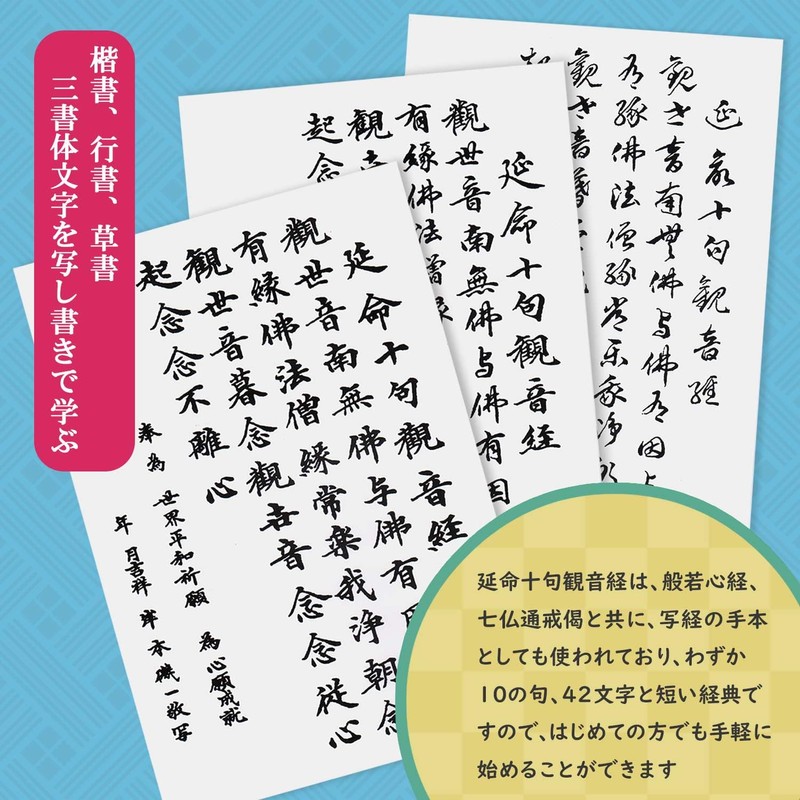 楷書、行書、草書
三書体文字を写し書きで学ぶ
延命十句觀音経
觀世音南無佛与佛有因与
有縁佛法僧縁常楽我浄
觀世音暮念
延命十句觀音経
觀世音南無佛与佛有因
有縁佛法僧縁
觀世
起念
延命十句觀音経
觀世音南無佛与佛有
有縁佛法僧縁常楽我浄朝念
觀世音暮念觀世音念念従心
起念念不離心
奉為 世界平和祈願 為心願成就
年 月吉祥 岸本機一敬写
延命十句観音経は、般若心経、
七仏通戒偈と共に、写経の手本
としても使われており、わずか
10の句、42文字と短い経典で
すので、はじめての方でも手軽に
始めることができます